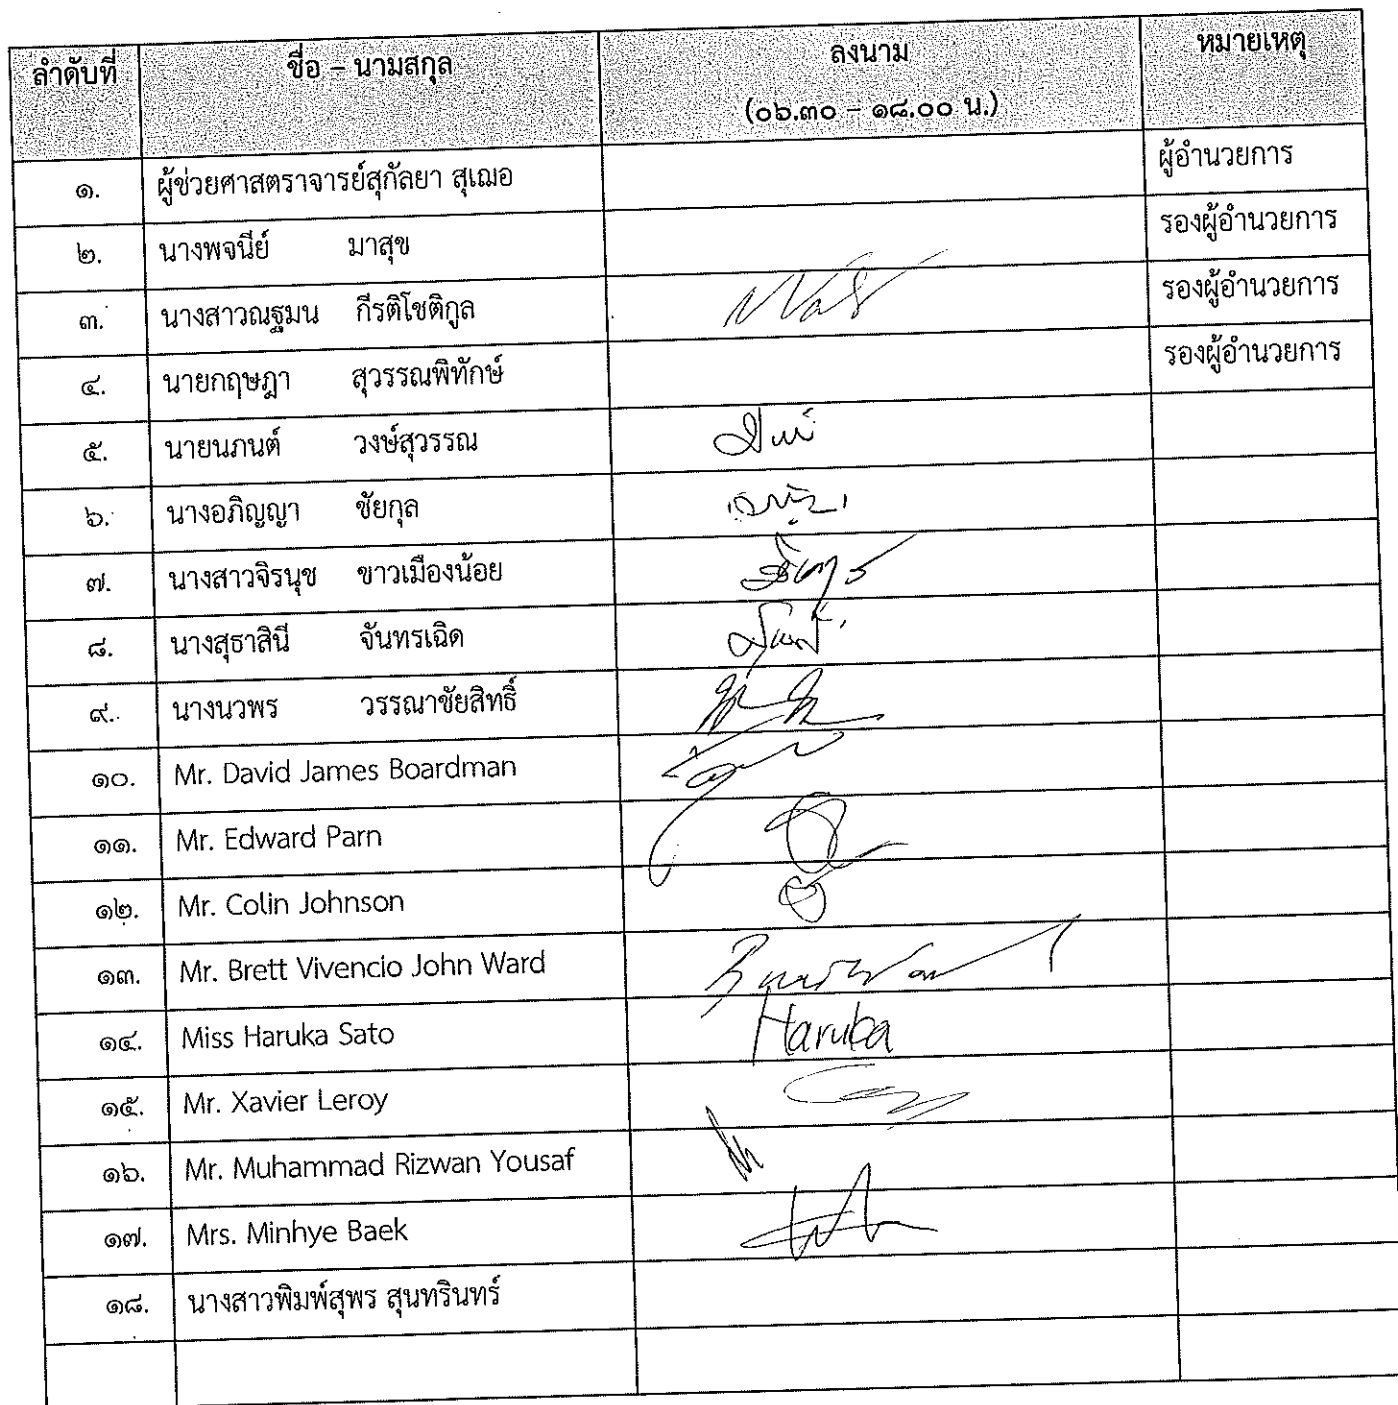 ลำดับที่ ชื่อ – นามสกุล ลงนาม หมายเหตุ
(๐๖.๓๐ – ๑๘.๐๐ น.)
๑. ผู้ช่วยศาสตราจารย์สุกัลยา สุเฌอ ผู้อำนวยการ
๒. นางพจนีย์ มาสุข รองผู้อำนวยการ
๓. นางสาวณฐมน กีรติโชติกูล รองผู้อำนวยการ
๔. นายกฤษฎา สุวรรณพิทักษ์ รองผู้อำนวยการ
๕. นายนภนต์ วงษ์สุวรรณ
๖. นางอภิญญา ชัยกุล
๗. นางสาวจิรนุช ขาวเมืองน้อย
๘. นางสุธาสินี จันทรเฉิด
๙. นางนวพร วรรณาชัยสิทธิ์
๑๐. Mr. David James Boardman
๑๑. Mr. Edward Parn
๑๒. Mr. Colin Johnson
๑๓. Mr. Brett Vivencio John Ward
๑๔. Miss Haruka Sato Haruka
๑๕. Mr. Xavier Leroy
๑๖. Mr. Muhammad Rizwan Yousaf
๑๗. Mrs. Minhye Baek
๑๘. นางสาวพิมพ์สุพร สุนทรินทร์